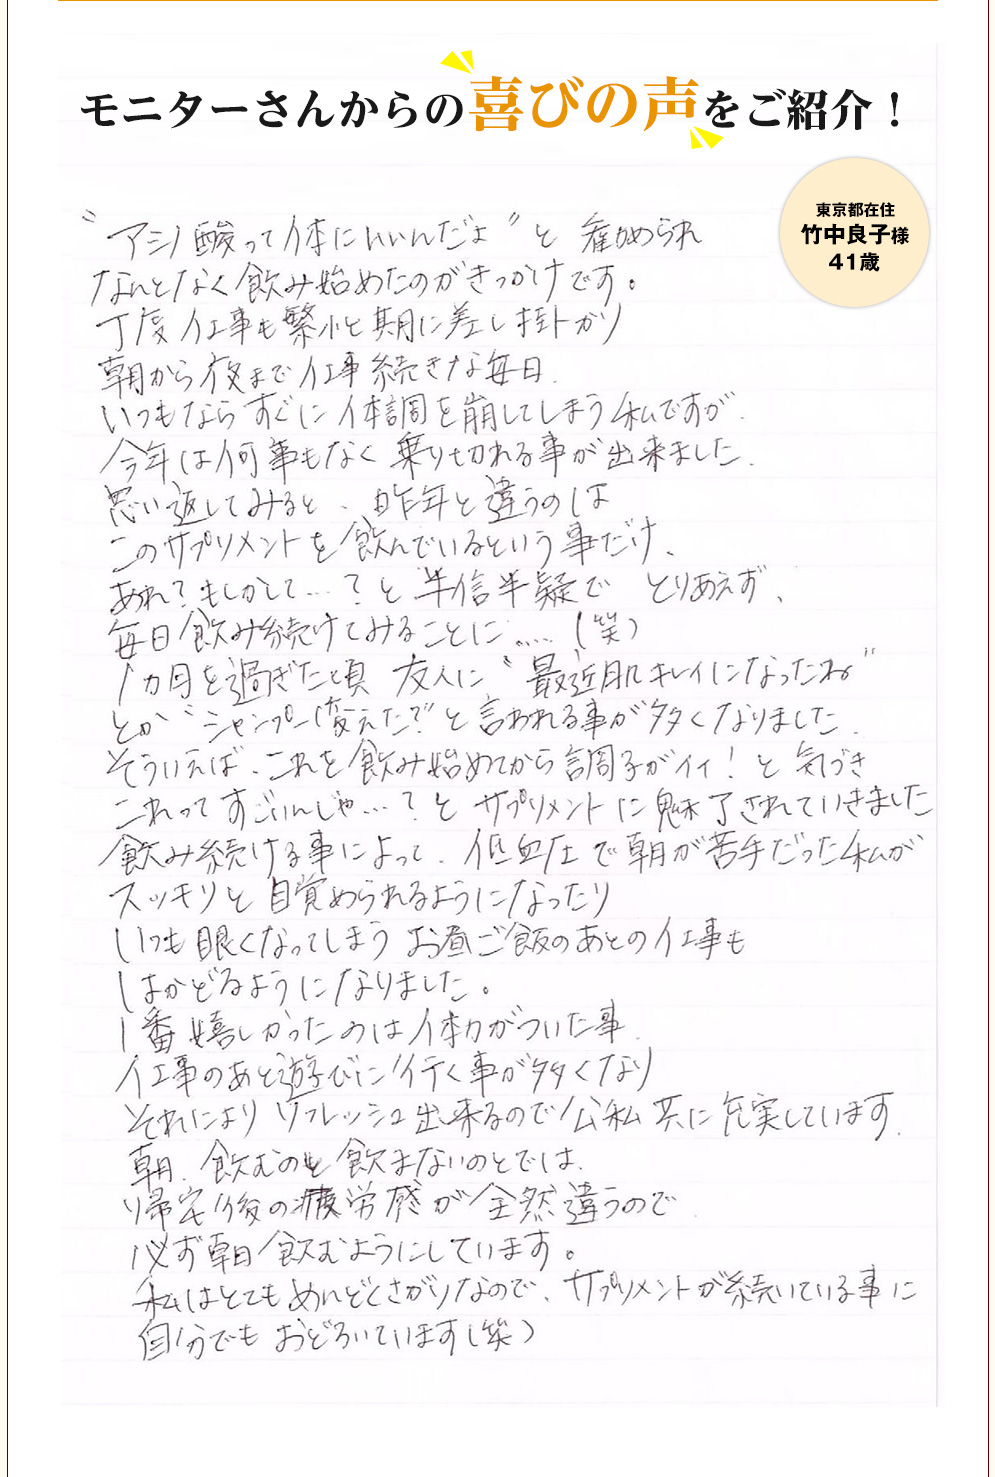 モニターさんからの喜びの声をご紹介！
東京都在住
竹中良子様
41歳
〝アミノ酸って体にいいんだよ〟と薦められ
なんとなく飲み始めたのがきっかけです。
丁度仕事も繁忙期に差し掛かり
朝から夜まで仕事続きな毎日.
いつもならすぐに体調を崩してしまう私ですが.
今年は何事もなく乗り切れる事が出来ました.
思い返してみると、昨年と違うのは
このサプリメントを飲んでいるという事だけ、
あれ？もしかして…？と半信半疑でとりあえず、
毎日飲み続けてみることに……(笑)
1カ月を過ぎた頃 友人に〝最近肌キレイになったね〟
とか〝シャンプー変えた？〟と言われる事が多くなりました.
そういえば、これを飲み始めてから調子がイイ！と気づき
これってすごいんじゃ…？とサプリメントに魅了されていきました
飲み続ける事によって、低血圧で朝が苦手だった私が
スッキリと目覚められるようになったり
いつも眠くなってしまうお昼ご飯のあとの仕事も
はかどるようになりました。
1番嬉しかったのは体力がついた事.
仕事のあと遊びに行く事が多くなり
それによりリフレッシュ出来るので公私共に充実しています.
朝、飲むのと飲まないのとでは、
帰宅後の疲労感が全然違うので.
必ず朝飲むようにしています。
私はとてもめんどくさがりなので、サプリメントが続いている事に
自分でもおどろいています(笑)